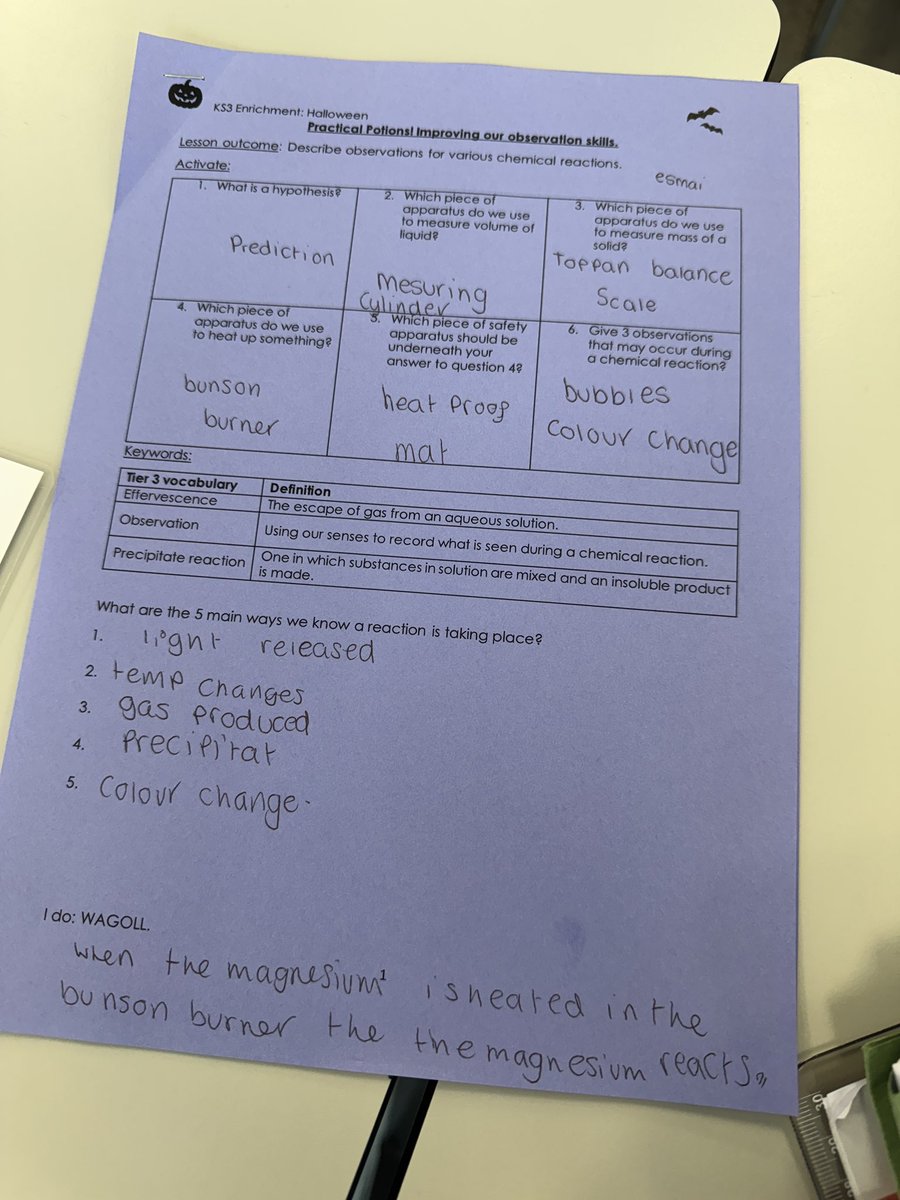 KS3 Enrichment: Halloween
Practical Potions! Improving our observation skills.
Lesson outcome: Describe observations for various chemical reactions.
esmai
Activate:
1. What is a hypothesis?
Prediction
2. Which piece of
apparatus do we use
to measure volume of
liquid?
Mesuring
Cylinder
3. Which piece of
apparatus do we use
to measure mass of a
solid?
Toppan balance
Scale
4. Which piece of
apparatus do we use
to heat up something?
bunson
burner
5. Which piece of safety
apparatus should be
underneath your
answer to question 4?
heat Proof
mat
6. Give 3 observations
that may occur during
a chemical reaction?
bubbles
Colour Change
Keywords:
Tier 3 vocabulary Definition
Effervescence The escape of gas from an aqueous solution.
Observation Using our senses to record what is seen during a chemical reaction.
Precipitate reaction One in which substances in solution are mixed and an insoluble product
is made.
What are the 5 main ways we know a reaction is taking place?
1. light released
2. temp changes
3. gas produced
4. Precipitat
5. Colour change.
I do: WAGOLL.
when the magnesium is heated in the
1
bunson burner the the magnesium reacts